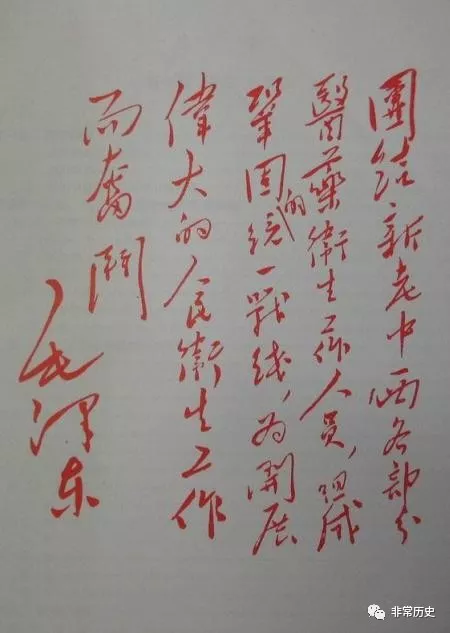 團结新老中西各部分
醫藥衛生工作人员，组成
鞏固的统一戰线，为開展
偉大的人民衛生工作
而奮鬥
毛泽东
非常历史